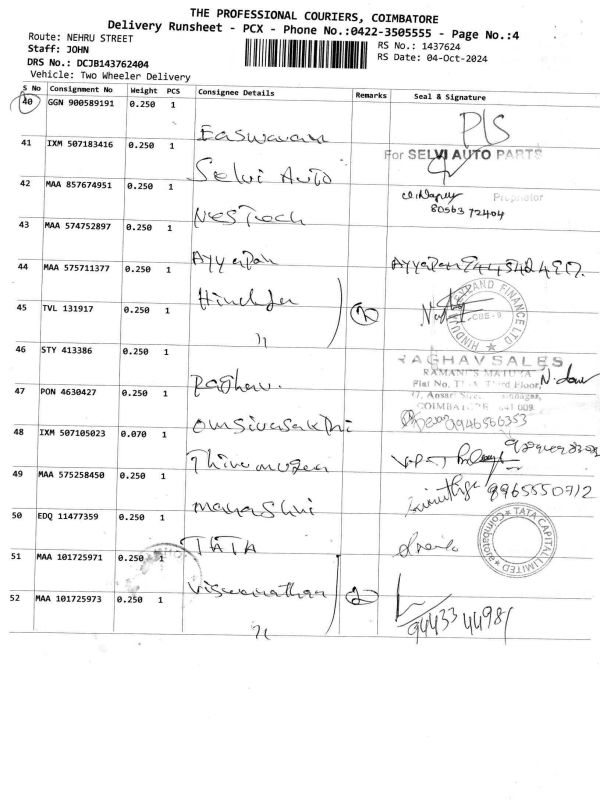 THE PROFESSIONAL COURIERS, COIMBATORE
Delivery Runsheet - PCX - Phone No.:0422-3505555 - Page No.:4
Route: NEHRU STREET
RS No.: 1437624
Staff: JOHN
RS Date: 04-Oct-2024
DRS No.: DCJB143762404
Vehicle: Two Wheeler Delivery
S No Consignment No Weight PCS Consignee Details Remarks Seal & Signature
40 GGN 900589191 0.250 1
Easwaran P/S
41 IXM 507183416 0.250 1
For SELVI AUTO PARTS
Selvi Auto
42 MAA 857674951 0.250 1
Proprietor
80563 72404
43 MAA 574752897 0.250 1
Ayyapan Ayyapan
44 MAA 575711377 0.250 1
HINDUJA LEYLAND FINANCE LTD
CBE-9
45 TVL 131917 0.250 1
46 STY 413386 0.250 1
RAGHAV SALES
RAMANI'S MATUZA
Third Floor,
Raghav.
47 PON 4630427 0.250 1
COIMBATORE 641 009
Omsivasakthi 9946566353
48 IXM 507105023 0.070 1
Thirumugan
49 MAA 575258450 0.250 1
8965550712
50 EDQ 11477359 0.250 1
TATA
TATA CAPITAL LIMITED
Coimbatore
51 MAA 101725971 0.250 1
Viswanathan
52 MAA 101725973 0.250 1
94433 44981